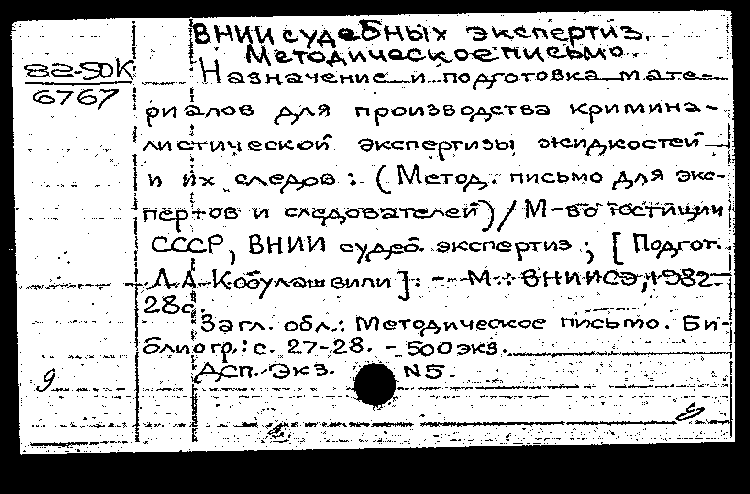 ВНИИ судебных экспертиз.
Методическое письмо.
82-50К
6767
Назначение и подготовка мате-
риалов для производства кримина-
листической экспертизы жидкостей
и их следов: (Метод. письмо для экс-
пертов и следователей) / М-во юстиции
СССР, ВНИИ судеб. экспертиз; [Подгот.
Л.А. Кобулашвили]. - М.: ВНИИСЭ, 1982.
28с.
Загл. обл.: Методическое письмо. Би-
блиогр.: с. 27-28. - 500 экз.
Дсп. Экз. N5.
9